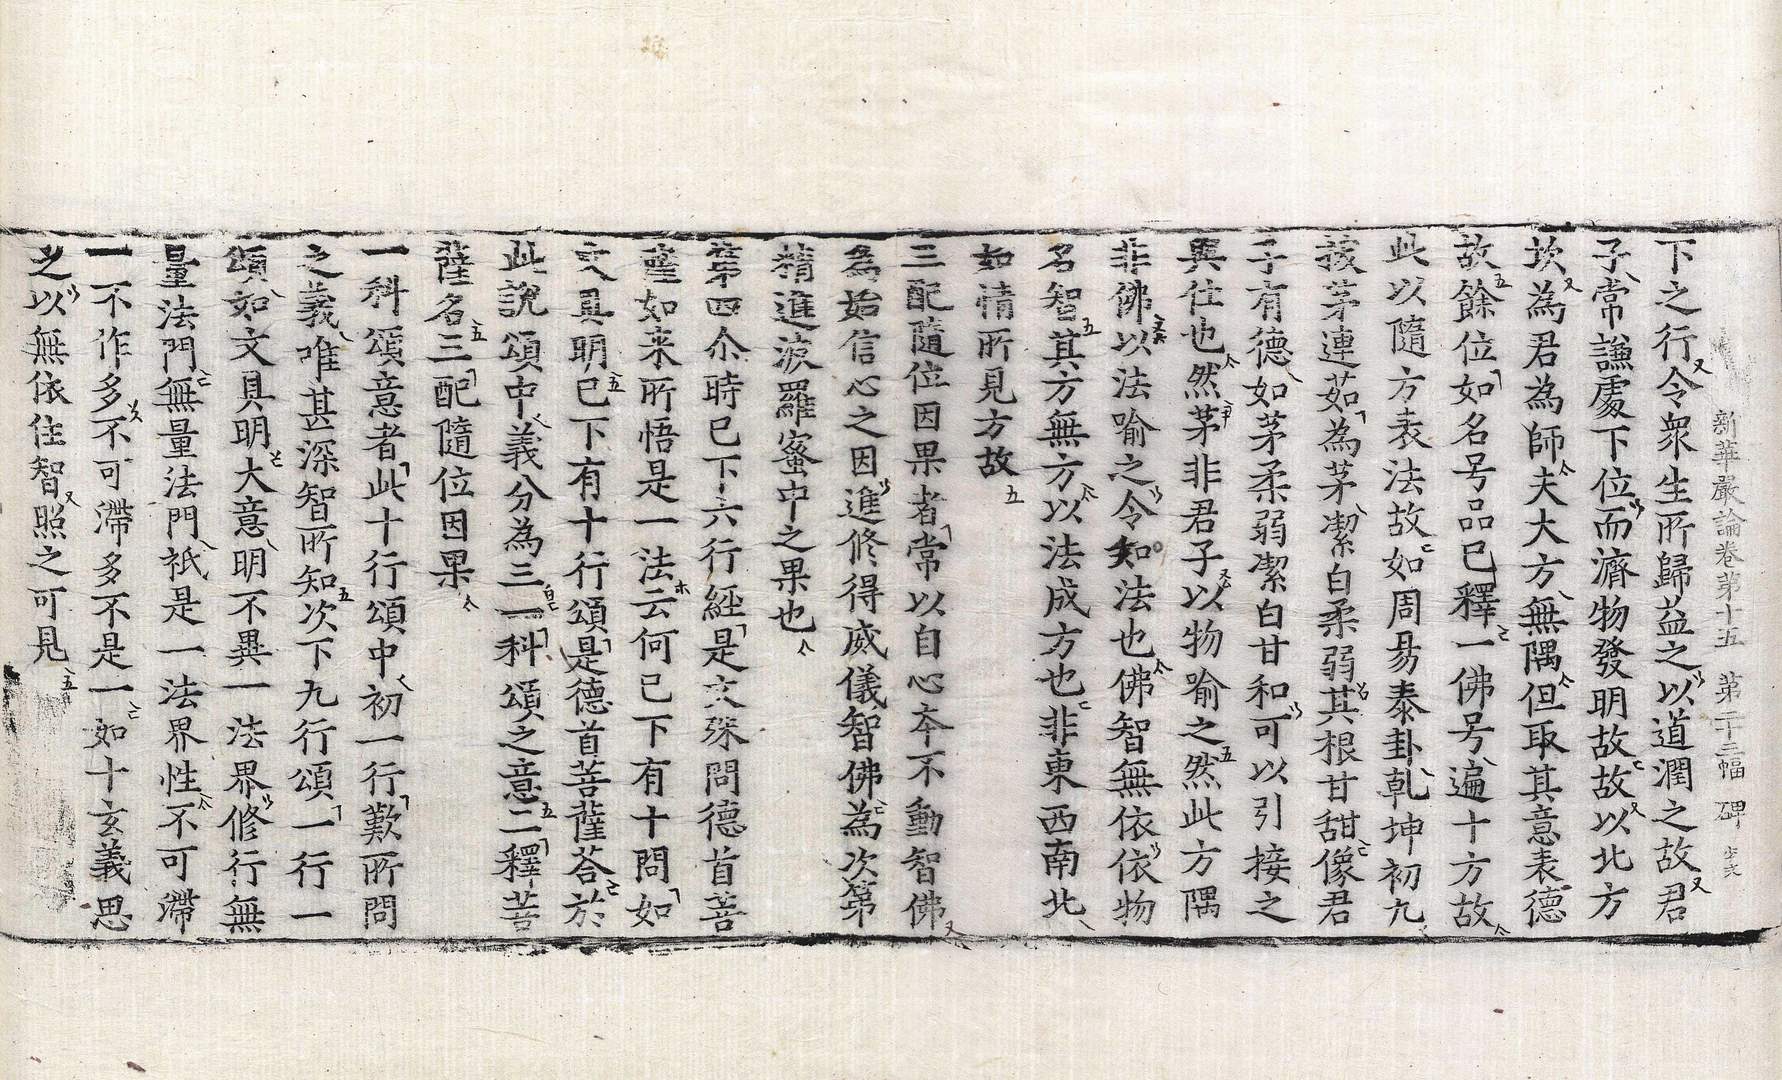 新華嚴論卷第十五 第二十三幅 碑
下之行令衆生所歸益之以道潤之故君
子常謙處下位而濟物發明故故以北方
坎為君為師夫大方無隅但取其意表德
故餘位如名号品已釋一佛号遍十方故
此以隨方表法故如周易泰卦乹坤初九
拔茅連茹為茅㓗白柔弱其根甘甜像君
子有德如茅柔弱㓗白甘和可以引接之
與仕也然茅非君子以物喻之然此方隅
非佛以法喻之令知法也佛智無依依物
名智其方無方以法成方也非東西南北
如情所見方故
三配隨位因果者常以自心夲不動智佛
為始信心之因進修得威儀智佛為次第
精進波羅蜜中之果也
第四尒時已下六行經是文殊問德首菩
薩如来所悟是一法云何已下有十問如
文具明已下有十行頌是德首菩薩荅於
此說頌中義分為三一科頌之意二釋菩
薩名三配隨位因果
一科頌意者此十行頌中初一行歎所問
之義唯甚深智所知次下九行頌一行一
頌如文具明大意明不異一法界修行無
量法門無量法門祇是一法界性不可滯
一不作多不可滯多不是一如十玄義思
之以無依住智照之可見